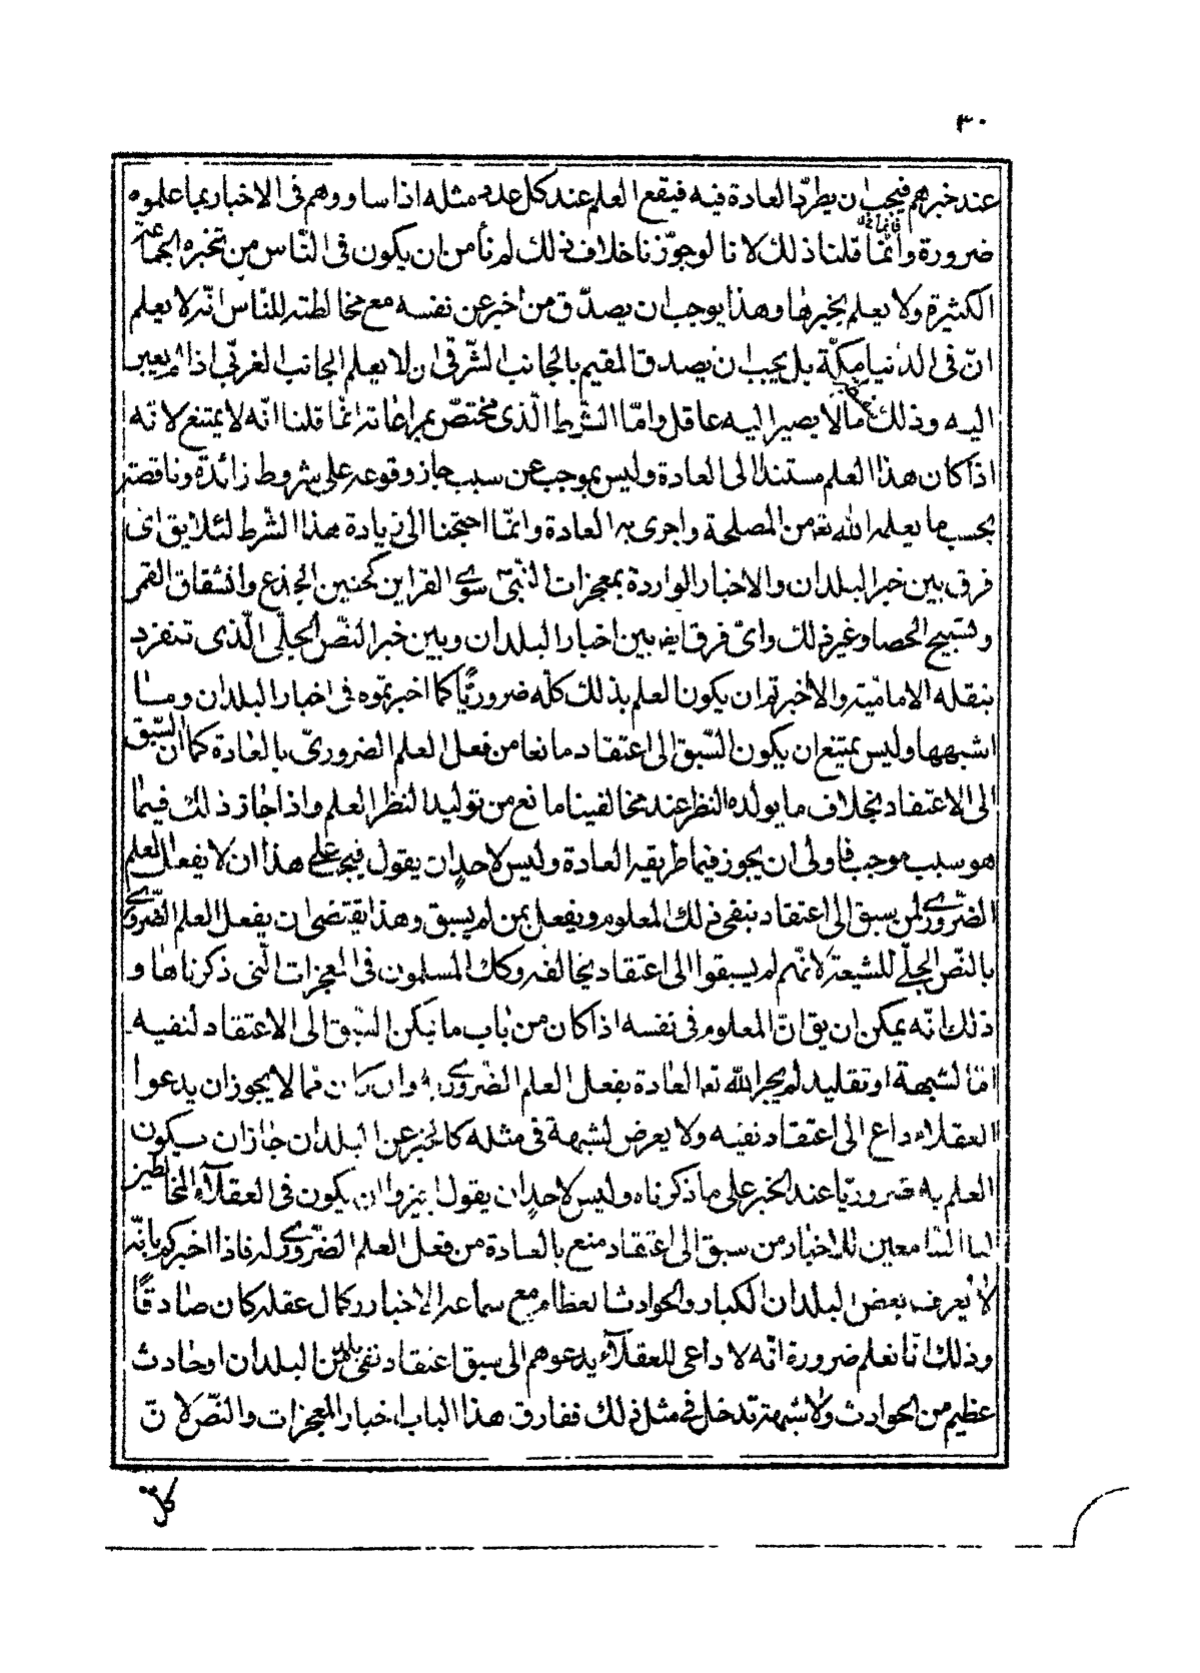 ٣٠
عند خبرهم فيجب ان يطرد العادة فيه فيقع العلم عند كل عدد مثله اذا ساووهم فى الاخبار بما علموه
ضرورة وانّما قلنا ذلك لانا لو جوّزنا خلاف ذلك لم نأمن ان يكون فى النّاس من تخبره الجماعة
الكثيرة ولا يعلم بخبرها وهذا يوجب ان يصدّق من اخبر عن نفسه مع مخالطته للنّاس انّه لا يعلم
انّ فى الدّنيا مكّة بل يجب ان يصدق المقيم بالجانب الشّرقى ان لا يعلم الجانب الغربّى اذا لم يعبر
اليه وذلك ممّا لا يصير اليه عاقل وامّا الشّرط الّذى مختصّ بمراعاته انمّا قلنا انّه لا يمتنع لانّه
اذا كان هذا العلم مستندا الى العادة وليس بموجب عن سبب جاز وقوعه على شروط زائدة وناقصة
بحسب ما يعلمه الله تعه من المصلحة واجرى به العادة وانمّا احتجنا الى زيادة هذا الشّرط لئلا يق اى
فرق بين خبر البلدان والاخبار الواردة بمعجزات النّبىّ سوى القراين كحنين الجذع وانشقاق القمر
وتسبيح الحصا وغير ذلك واىّ فرق ايضه بين اخبار البلدان وبين خبر النصّ الجلّى الّذى تنفرد
بنقله الاماميّة والا اخبرتم ان يكون العلم بذلك كلّه ضروريّا كما اخبرتموه فى اخبار البلدان وما
اشبهها وليس يمتنع ان يكون السّبق الى اعتقاد مانعا من فعل العلم الضرورىّ بالعادة كما ان السّبق
الى الاعتقاد بخلاف ما يولده النظر عند مخالفينا مانع من توليد النظر العلم واذا جاز ذلك فيما
هو سبب موجب فاولى ان يجوز فيما طريقه العادة وليس لاحد ان يقول فيجب على هذا ان لا يفعل العلم
الضّرورى لمن يسبق الى اعتقاد بنفى ذلك المعلوم ويفعل بمن لم يسبق وهذا يقتضى ان يفعل العلم الضّرورى
بالنّص الجلّى للشيعة لانّهم لم يسبقوا الى اعتقاد يخالفه وكك المسلمون فى المعجزات الّتى ذكرناها و
ذلك انّه يمكن ان يق انّ المعلوم فى نفسه اذا كان من باب ما يمكن السّبق الى الاعتقاد لنفيه
امّا لشبهة او تقليد لم يجر الله تعه العادة بفعل العلم الضّرورى به وان كان ممّا لا يجوز ان يدعوا
العقلاء داع الى اعتقاد نفيه ولا يعرض لشبهة فى مثله كالخبر عن البلدان جاز ان يكون
العلم به ضروريّا عند الخبر على ما ذكرناه وليس لاحد ان يقول اجيزوا ان يكون فى العقلاء المخالطين
لنا السّامعين للاخبار من سبق الى اعتقاد منع بالعادة من فعل العلم الضّرورى له فاذا اخبركم بانّه
لا يعرف بعض البلدان الكبار والحوادث العظام مع سماعه الاخبار وكمال عقله كان صادقًا
وذلك انّا نعلم ضرورة انّه لا داعى للعقلاء يدعوهم الى سبق اعتقاد نفى بلد من البلدان او حادث
عظيم من الحوادث ولا شبهة تدخل فى مثل ذلك ففارق هذا الباب اخبار المعجزات والنّص لانّ
كل